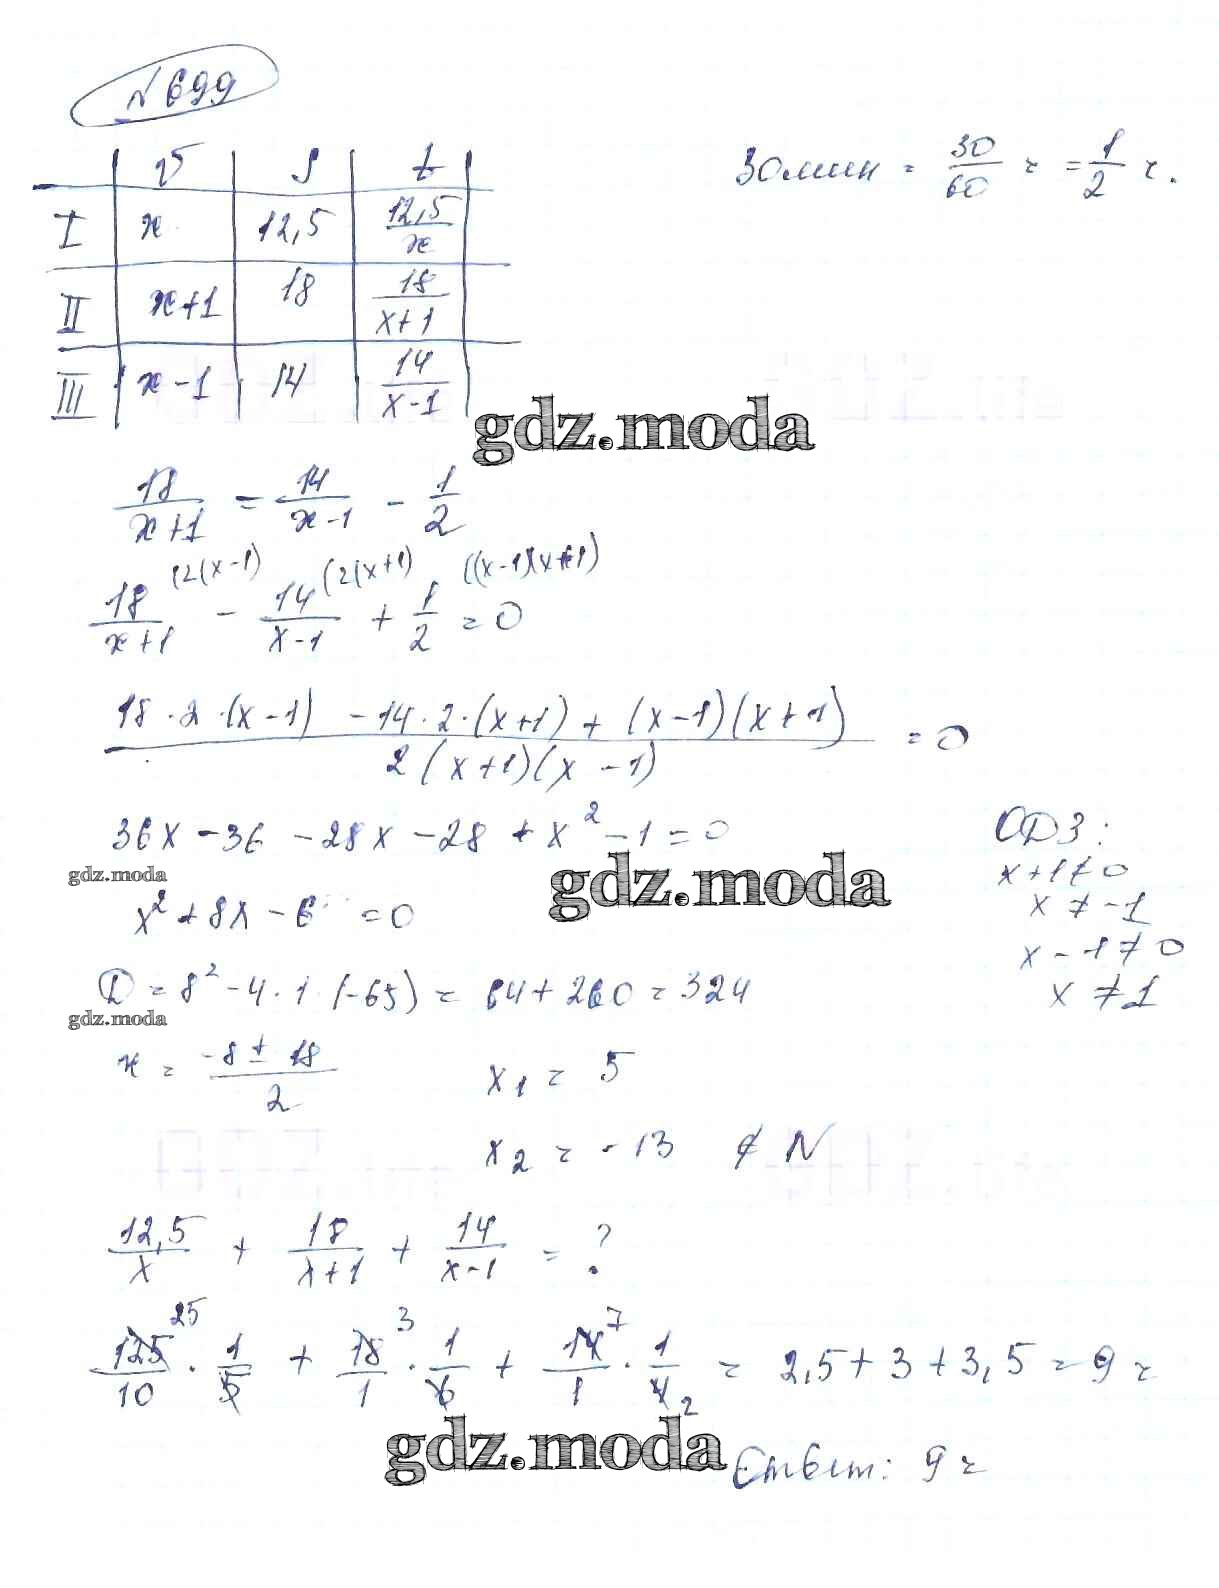 №699
V S t
I x 12,5 12,5/x
II x+1 18 18/(x+1)
III x-1 14 14/(x-1)
30мин = 30/60 ч = 1/2 ч.
gdz.moda
18/(x+1) = 14/(x-1) - 1/2
18/(x+1) (2(x-1) - 14/(x-1) (2(x+1) + 1/2 ((x-1)(x+1) = 0
(18·2·(x-1) - 14·2·(x+1) + (x-1)(x+1))/(2(x+1)(x-1)) = 0
36x - 36 - 28x - 28 + x² - 1 = 0
gdz.moda
gdz.moda
x² + 8x - 6 = 0
ОДЗ:
x+1≠0
x ≠ -1
x-1≠0
x ≠ 1
D = 8² - 4·1·(-65) = 64 + 260 = 324
gdz.moda
x = (-8 ± 18)/2
x1 = 5
x2 = -13 ∉ N
12,5/x + 18/(x+1) + 14/(x-1) = ?
125 25/10 · 1/5 + 18 3/1 · 1/6 + 14 7/1 · 1/4 2 = 2,5 + 3 + 3,5 = 9 ч
gdz.moda
Ответ: 9 ч